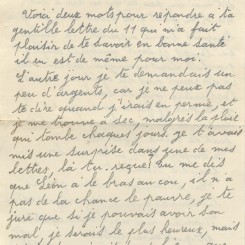 Voici deux mots pour repondre a ta
gentille lettre du 11 qui m'a fait
plaisir de te savoir en bonne santé
il en est de même pour moi.
L'autre jour je te demandais un
peu d'argents, car je ne peux pas
te dire quand j'irais en perme, et
je me trouve a sec, malgrès la pluie
qui tombe chaques jours. je t'avais
mis une surprise dans une de mes
lettres, la tu reçue? tu me dis
que Léon a le bras au cou, il n'a
pas de la chance le pauvre, je te
jure que si je pouvais avoir son
mal, je serais le plus heureux, mais